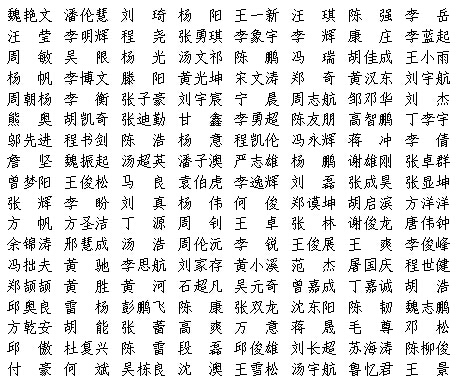 魏艳文 潘伦慧 刘琦 杨阳 王一新 汪琪 陈强 李岳
汪莹 李明辉 程尧 张勇琪 李象宇 李辉 康庄 李蓝起
周敏 吴限 杨光 汤文祁 陈鹏 冯瑞 胡佳成 王小雨
杨帆 李博文 滕阳 黄光坤 宋文涛 郑奇 黄汉东 刘宇航
周朝杨 李衡 张子豪 刘宇宸 宁晨 周志航 邹邓华 刘杰
熊奥 胡凯奇 张迪勤 甘鑫 李勇超 陈友朋 高智鹏 丁李宇
邬先进 程书剑 陈浩 杨意 程凯伦 冯永辉 蒋冲 李倩
詹坚 魏振起 汤超英 潘子澳 严志雄 杨鹏 谢雄刚 张卓群
曾梦阳 王俊松 马良 袁伯虎 李逸辉 刘磊 张成昊 张显坤
张辉 李盼 刘真 杨伟 何俊 郑谟坤 胡启滨 方洋洋
方帆 方圣洁 丁源 周钊 王卓 张林 谢俊龙 唐伟钟
余锦涛 邢慧成 汤浩 周伦沅 李锐 王俊展 王爽 李俊峰
冯拙夫 黄驰 李思航 刘家存 黄小溪 范杰 屠国庆 程世健
郑颉颉 黄胜 黄河 石超凡 吴元奇 曾嘉成 丁嘉诚 胡浩
邱奥良 雷杨 彭鹏飞 陈康 张双龙 沈东阳 陈韧 魏志鹏
方乾安 胡能 张蕾 高爽 万意 蒋晟 毛尊 邓松
邱傲 杜复兴 陈雷 段磊 邱俊雄 刘长超 苏海涛 陈柳俊
付豪 何斌 吴栋良 沈澳 王雪松 汤宇航 鲁忆君 王景